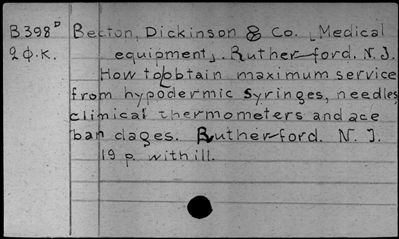 B398ᴰ Becton, Dickinson & Co. [Medical
QФ.K. equipment]. Rutherford. N.J.
How to obtain maximum service
from hypodermic syringes, needles,
clinical thermometers and ace
bandages. Rutherford. N.J.
19 p. with ill.